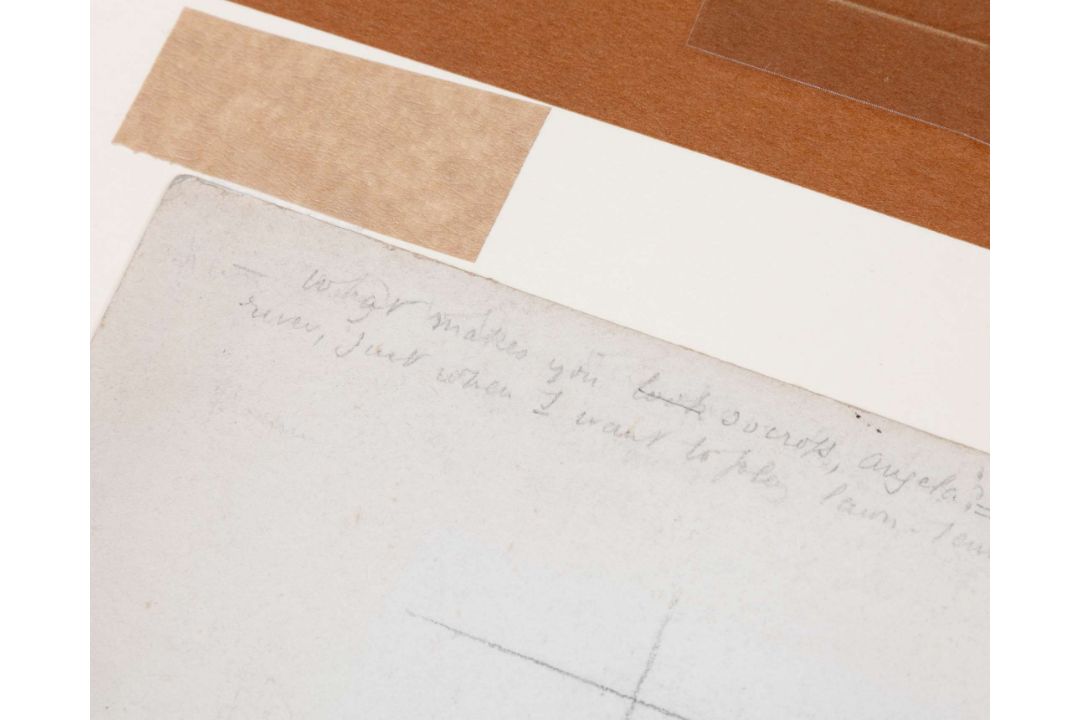 — What makes you look so cross, Angela?
river, Just when I want to play lawn-ten